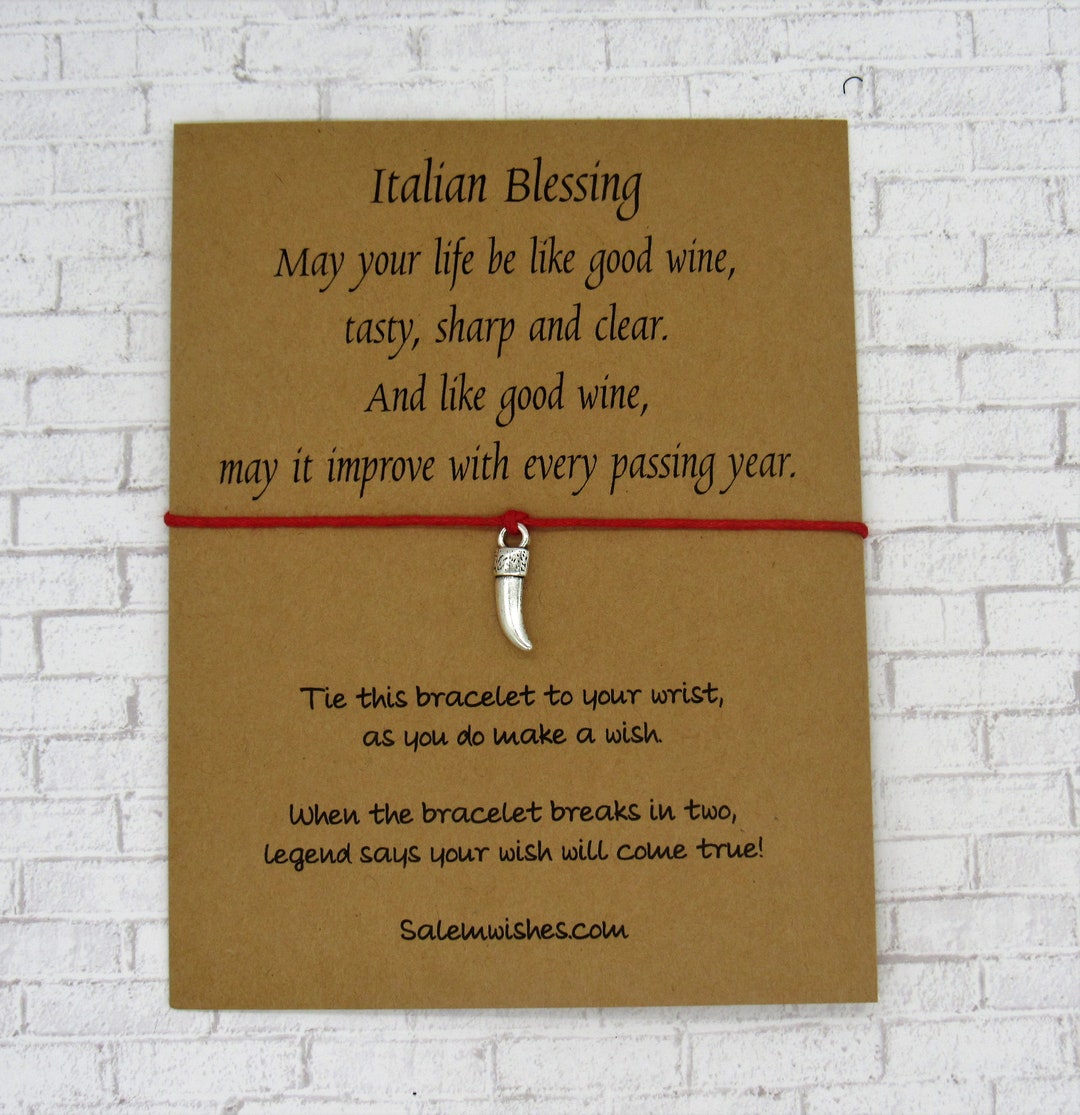 Italian Blessing
May your life be like good wine,
tasty, sharp and clear.
And like good wine,
may it improve with every passing year.
Tie this bracelet to your wrist,
as you do make a wish.
When the bracelet breaks in two,
legend says your wish will come true!
Salemwishes.com